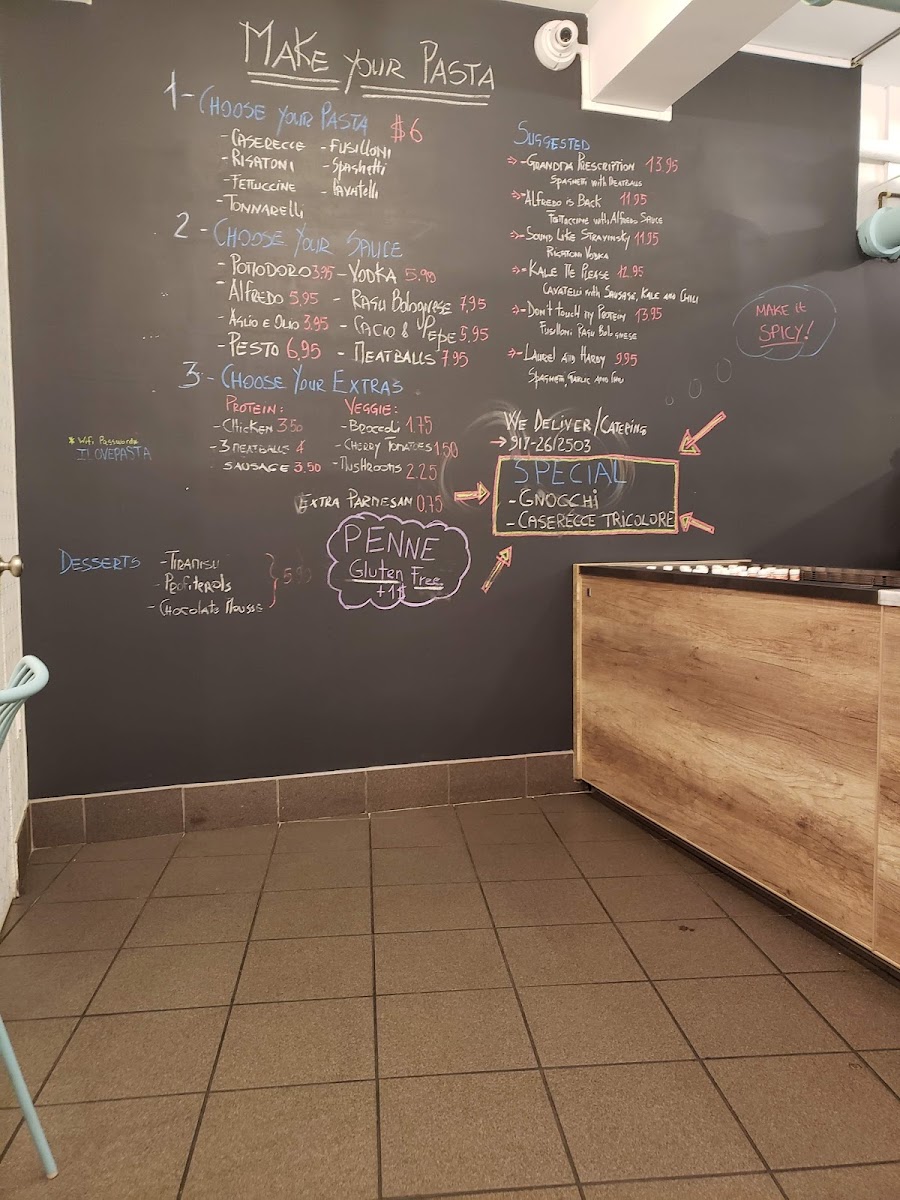 MAKE YOUR PASTA
1- CHOOSE YOUR PASTA $6
- CASERECCE - FUSILLONI
- RIGATONI - SPAGHETTI
- FETTUCCINE - CAVATELLI
- TONNARELLI
2 - CHOOSE YOUR SAUCE
- POMODORO 3.95 - VODKA 5,90
- ALFREDO 5,95 - RAGU BOLOGNESE 7,95
- AGLIO E OLIO 3.95 - CACIO & PEPE 5.95
- PESTO 6,95 - MEATBALLS 7.95
3 - CHOOSE YOUR EXTRAS
PROTEIN: VEGGIE:
- CHICKEN 3.50 - BROCCOLI 1.75
- 3 MEATBALLS 4 - CHERRY TOMATOES 1.50
SAUSAGE 3.50 - MUSHROOMS 2.25
EXTRA PARMESAN 0.75
* Wifi Password:
ILOVEPASTA
DESSERTS - TIRAMISU
- PROFITEROLS
- CHOCOLATE MOUSSE
PENNE
Gluten Free
+1$
SUGGESTED
- GRANDMA PRESCRIPTION 13.95
SPAGHETTI WITH MEATBALLS
- ALFREDO IS BACK 11.95
FETTUCCINE WITH ALFREDO SAUCE
- SOUND LIKE STRAVINSKY 11.95
RIGATONI VODKA
- KALE ME PLEASE 12.95
CAVATELLI WITH SAUSAGE, KALE AND CHILI
- DON'T TOUCH MY PROTEIN 13.95
FUSILLONI RAGU BOLOGNESE
- LAUREL AND HARDY 9.95
SPAGHETTI GARLIC AND
MAKE IT
SPICY!
WE DELIVER/CATERING
917-2612503
SPECIAL
- GNOCCHI
- CASERECCE TRICOLORE